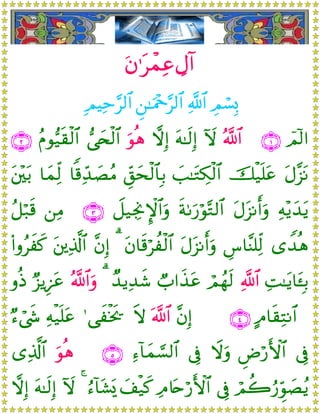 آلِ عِمْرَٰن
بِسْمِ ٱللَّهِ ٱلرَّحْمَٰنِ ٱلرَّحِيمِ
الٓمٓ ۝١ ٱللَّهُ لَآ إِلَٰهَ إِلَّا هُوَ ٱلْحَىُّ ٱلْقَيُّومُ ۝٢
نَزَّلَ عَلَيْكَ ٱلْكِتَٰبَ بِٱلْحَقِّ مُصَدِّقًا لِّمَا بَيْنَ
يَدَيْهِ وَأَنزَلَ ٱلتَّوْرَىٰةَ وَٱلْإِنجِيلَ ۝٣ مِن قَبْلُ
هُدًى لِّلنَّاسِ وَأَنزَلَ ٱلْفُرْقَانَ ۗ إِنَّ ٱلَّذِينَ كَفَرُوا۟
بِـَٔايَٰتِ ٱللَّهِ لَهُمْ عَذَابٌ شَدِيدٌ ۗ وَٱللَّهُ عَزِيزٌ ذُو
ٱنتِقَامٍ ۝٤ إِنَّ ٱللَّهَ لَا يَخْفَىٰ عَلَيْهِ شَىْءٌ
فِى ٱلْأَرْضِ وَلَا فِى ٱلسَّمَآءِ ۝٥ هُوَ ٱلَّذِى
يُصَوِّرُكُمْ فِى ٱلْأَرْحَامِ كَيْفَ يَشَآءُ ۚ لَآ إِلَٰهَ إِلَّا